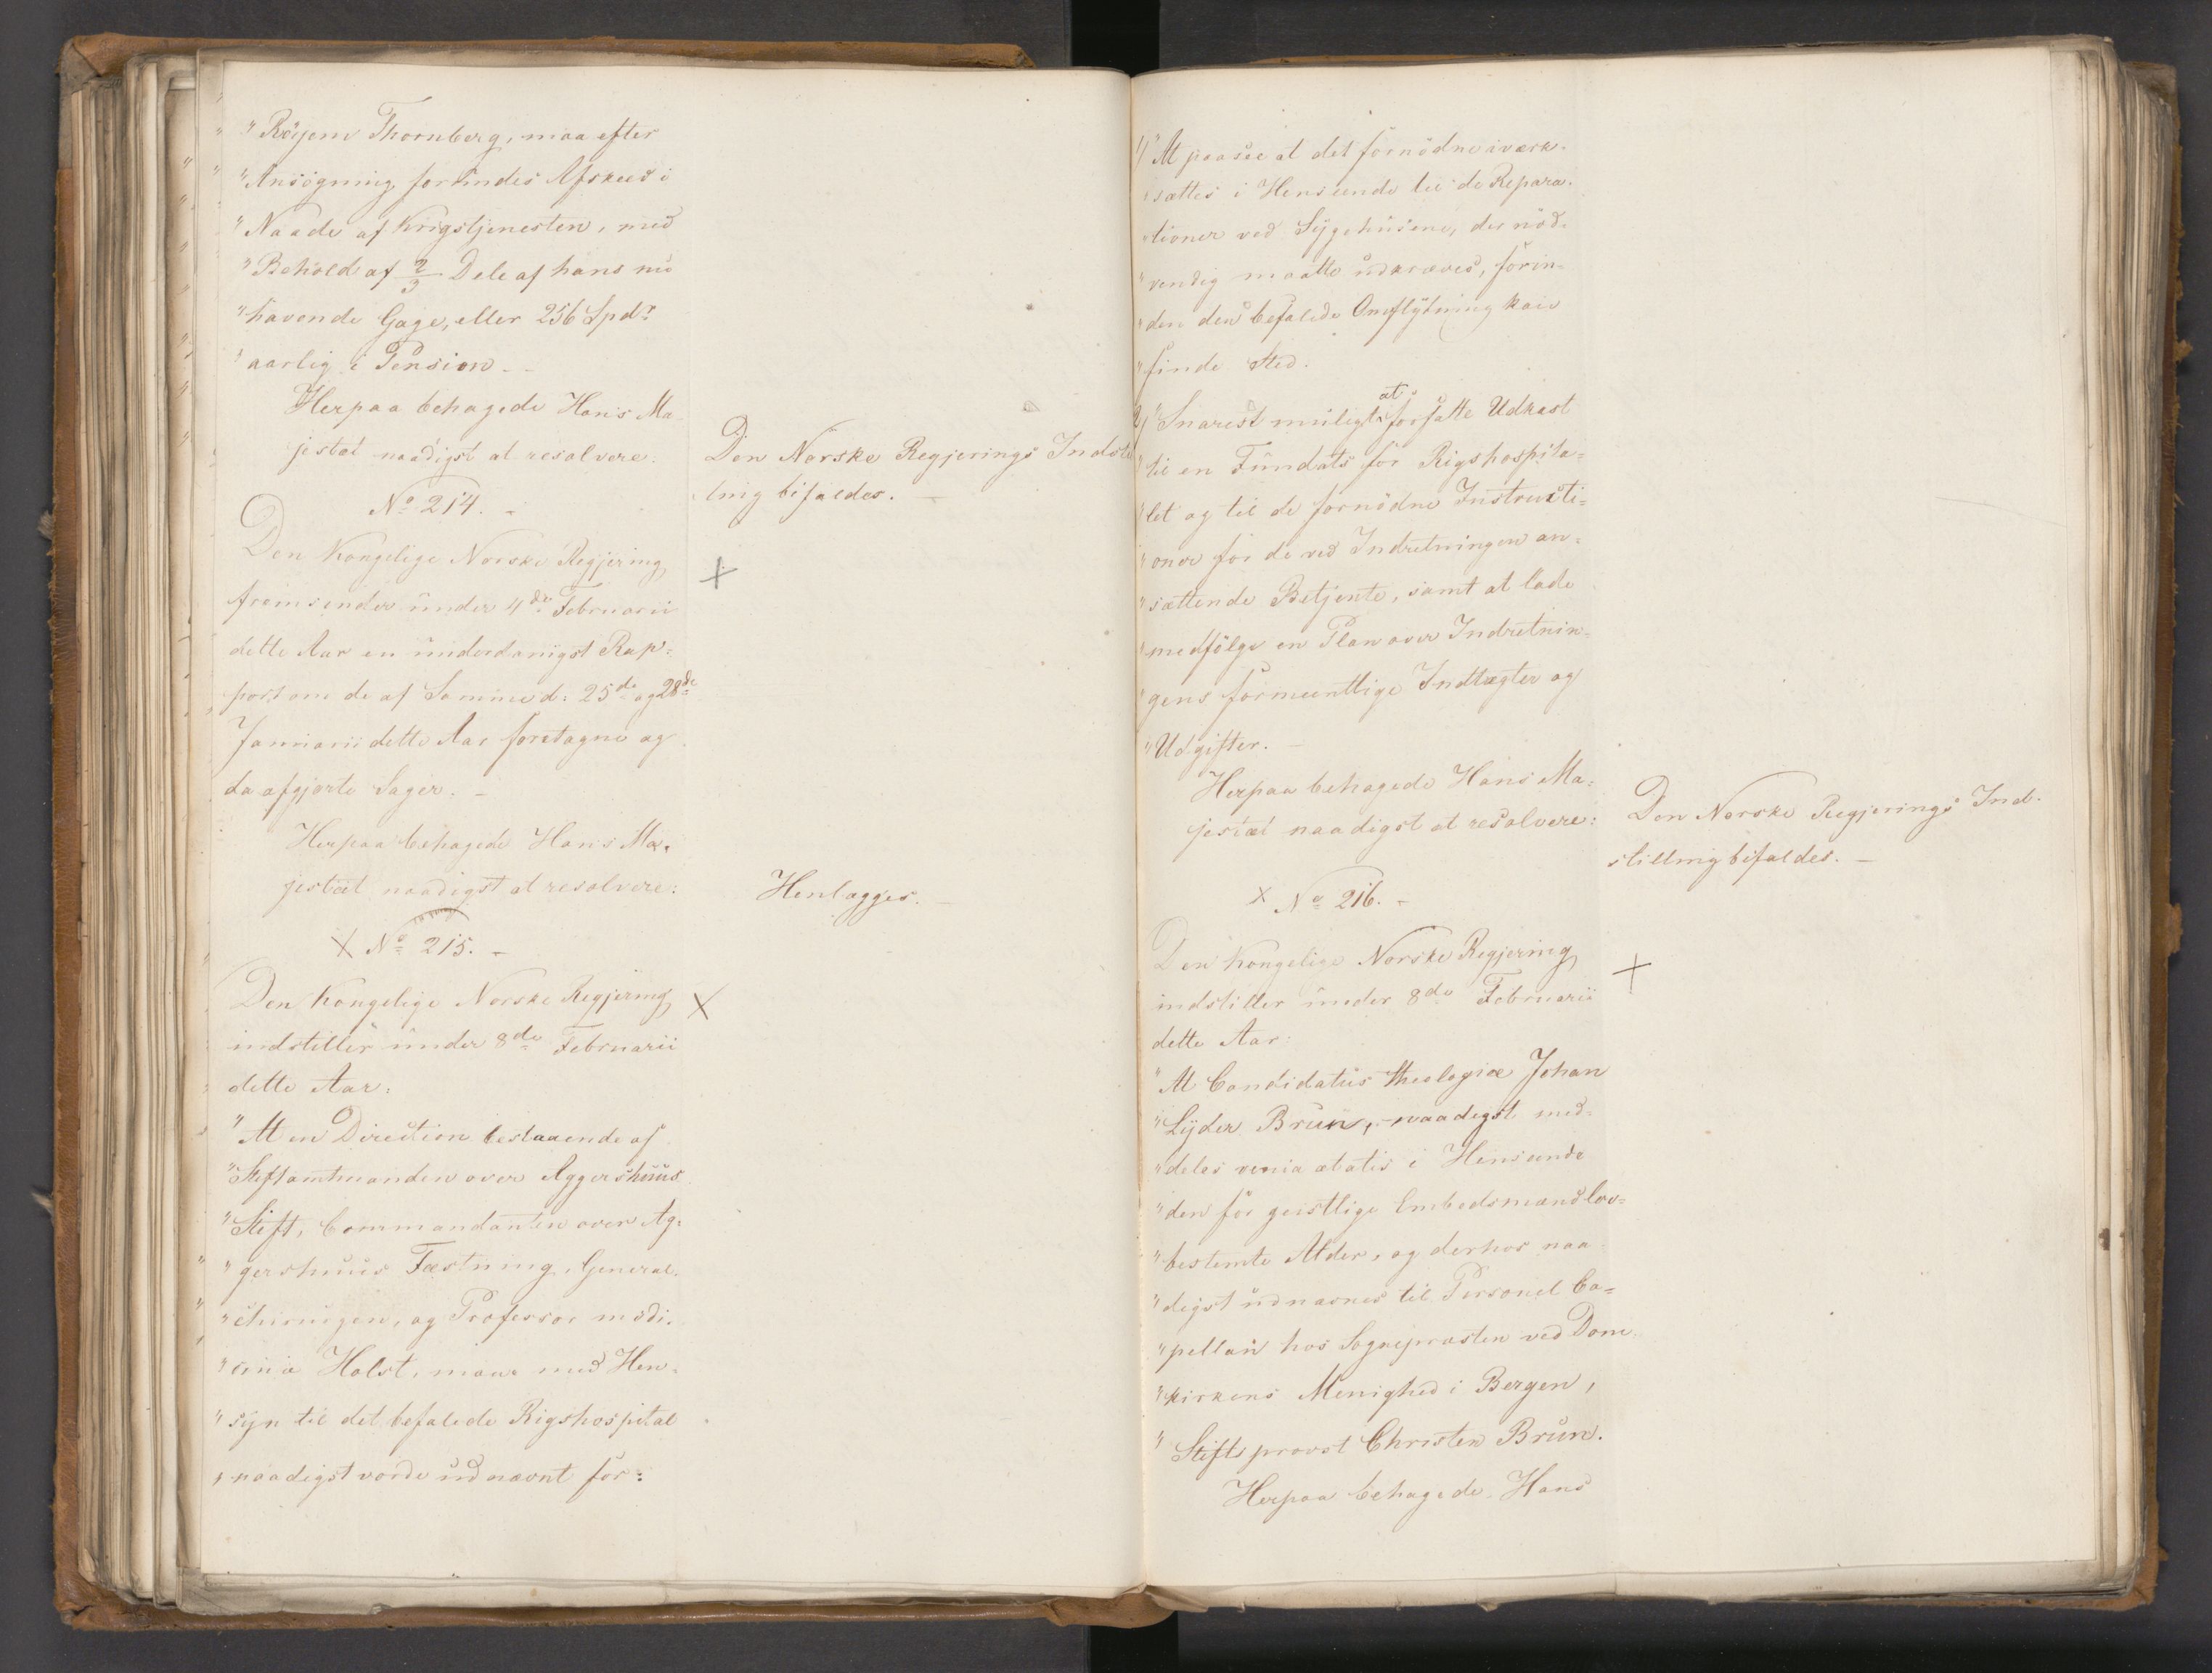 " Röyem Thornberg, maa efter
" Ansögning forundes Afskeed i
" Naade af Krigstjenesten, med
" Behold af 2/3 Dele af hans nu
" havende Gage, eller 256 Spdr
" aarlig i Pension. -
Herpaa behagede Hans Ma-
jestæt naadigst at resolvere:
Den Norske Regjerings Indstil
ling bifaldes. -
No 214. -
Den Kongelige Norske Regjering
fremsender under 4de Februarii
dette Aar en underdanigst Rap=
port om de af Samme d: 25de og 28de
Januarii dette Aar foretagne og
da afgjorte Sager. -
Herpaa behagede Hans Ma-
jestæt naadigst at resolvere:
Henlægges. -
x No 215. -
Den Kongelige Norske Regjering
indstiller under 8de Februarii
dette Aar:
" At en Direction bestaaende af
" Stiftamtmanden over Aggershuus
" Stift, Commandanten over Ag=
" gershuus Fæstning, General-
" chirurgen, og Professor medi-
" cinæ Holst, maae med Hen-
" syn til det befalede Rigshospital
" naadigst vorde udnævnt for:
1) " At paasee at det fornödne iværk-
" sættes i Henseende til de Repara-
" tioner ved Sygehusene, der nöd-
" vendig maatte udkræves, forin-
" den den befalede Omflytning kan
" finde Sted.
2) " Snarest muligt at forfatte Udkast
" til en Fundats for Rigshospita=
" let og til de fornödne Instructi=
" oner for de ved Indretningen an=
" sættende Betjente, samt at lade
" medfölge en Plan over Indretnin=
" gens formeentlige Indtægter og
" Udgifter. -
Herpaa behagede Hans Ma=
jestæt naadigst at resolvere:
Den Norske Regjerings Ind-
stilling bifaldes. -
x No 216. -
Den Kongelige Norske Regjering
indstiller under 8de Februarii
dette Aar:
" At Candidatus theologiæ Johan
" Lyder Brun, naadigst med-
" deles venia ætatis i Henseende
" den for geistlige Embedsmænd lov=
" bestemte Alder, og derhos naa
" digst udnævnes til Personel Ca=
" pellan hos Sognepræsten ved Dom-
" kirkens Menighed i Bergen,
" Stiftsprovst Christen Brun.
Herpaa behagede Hans